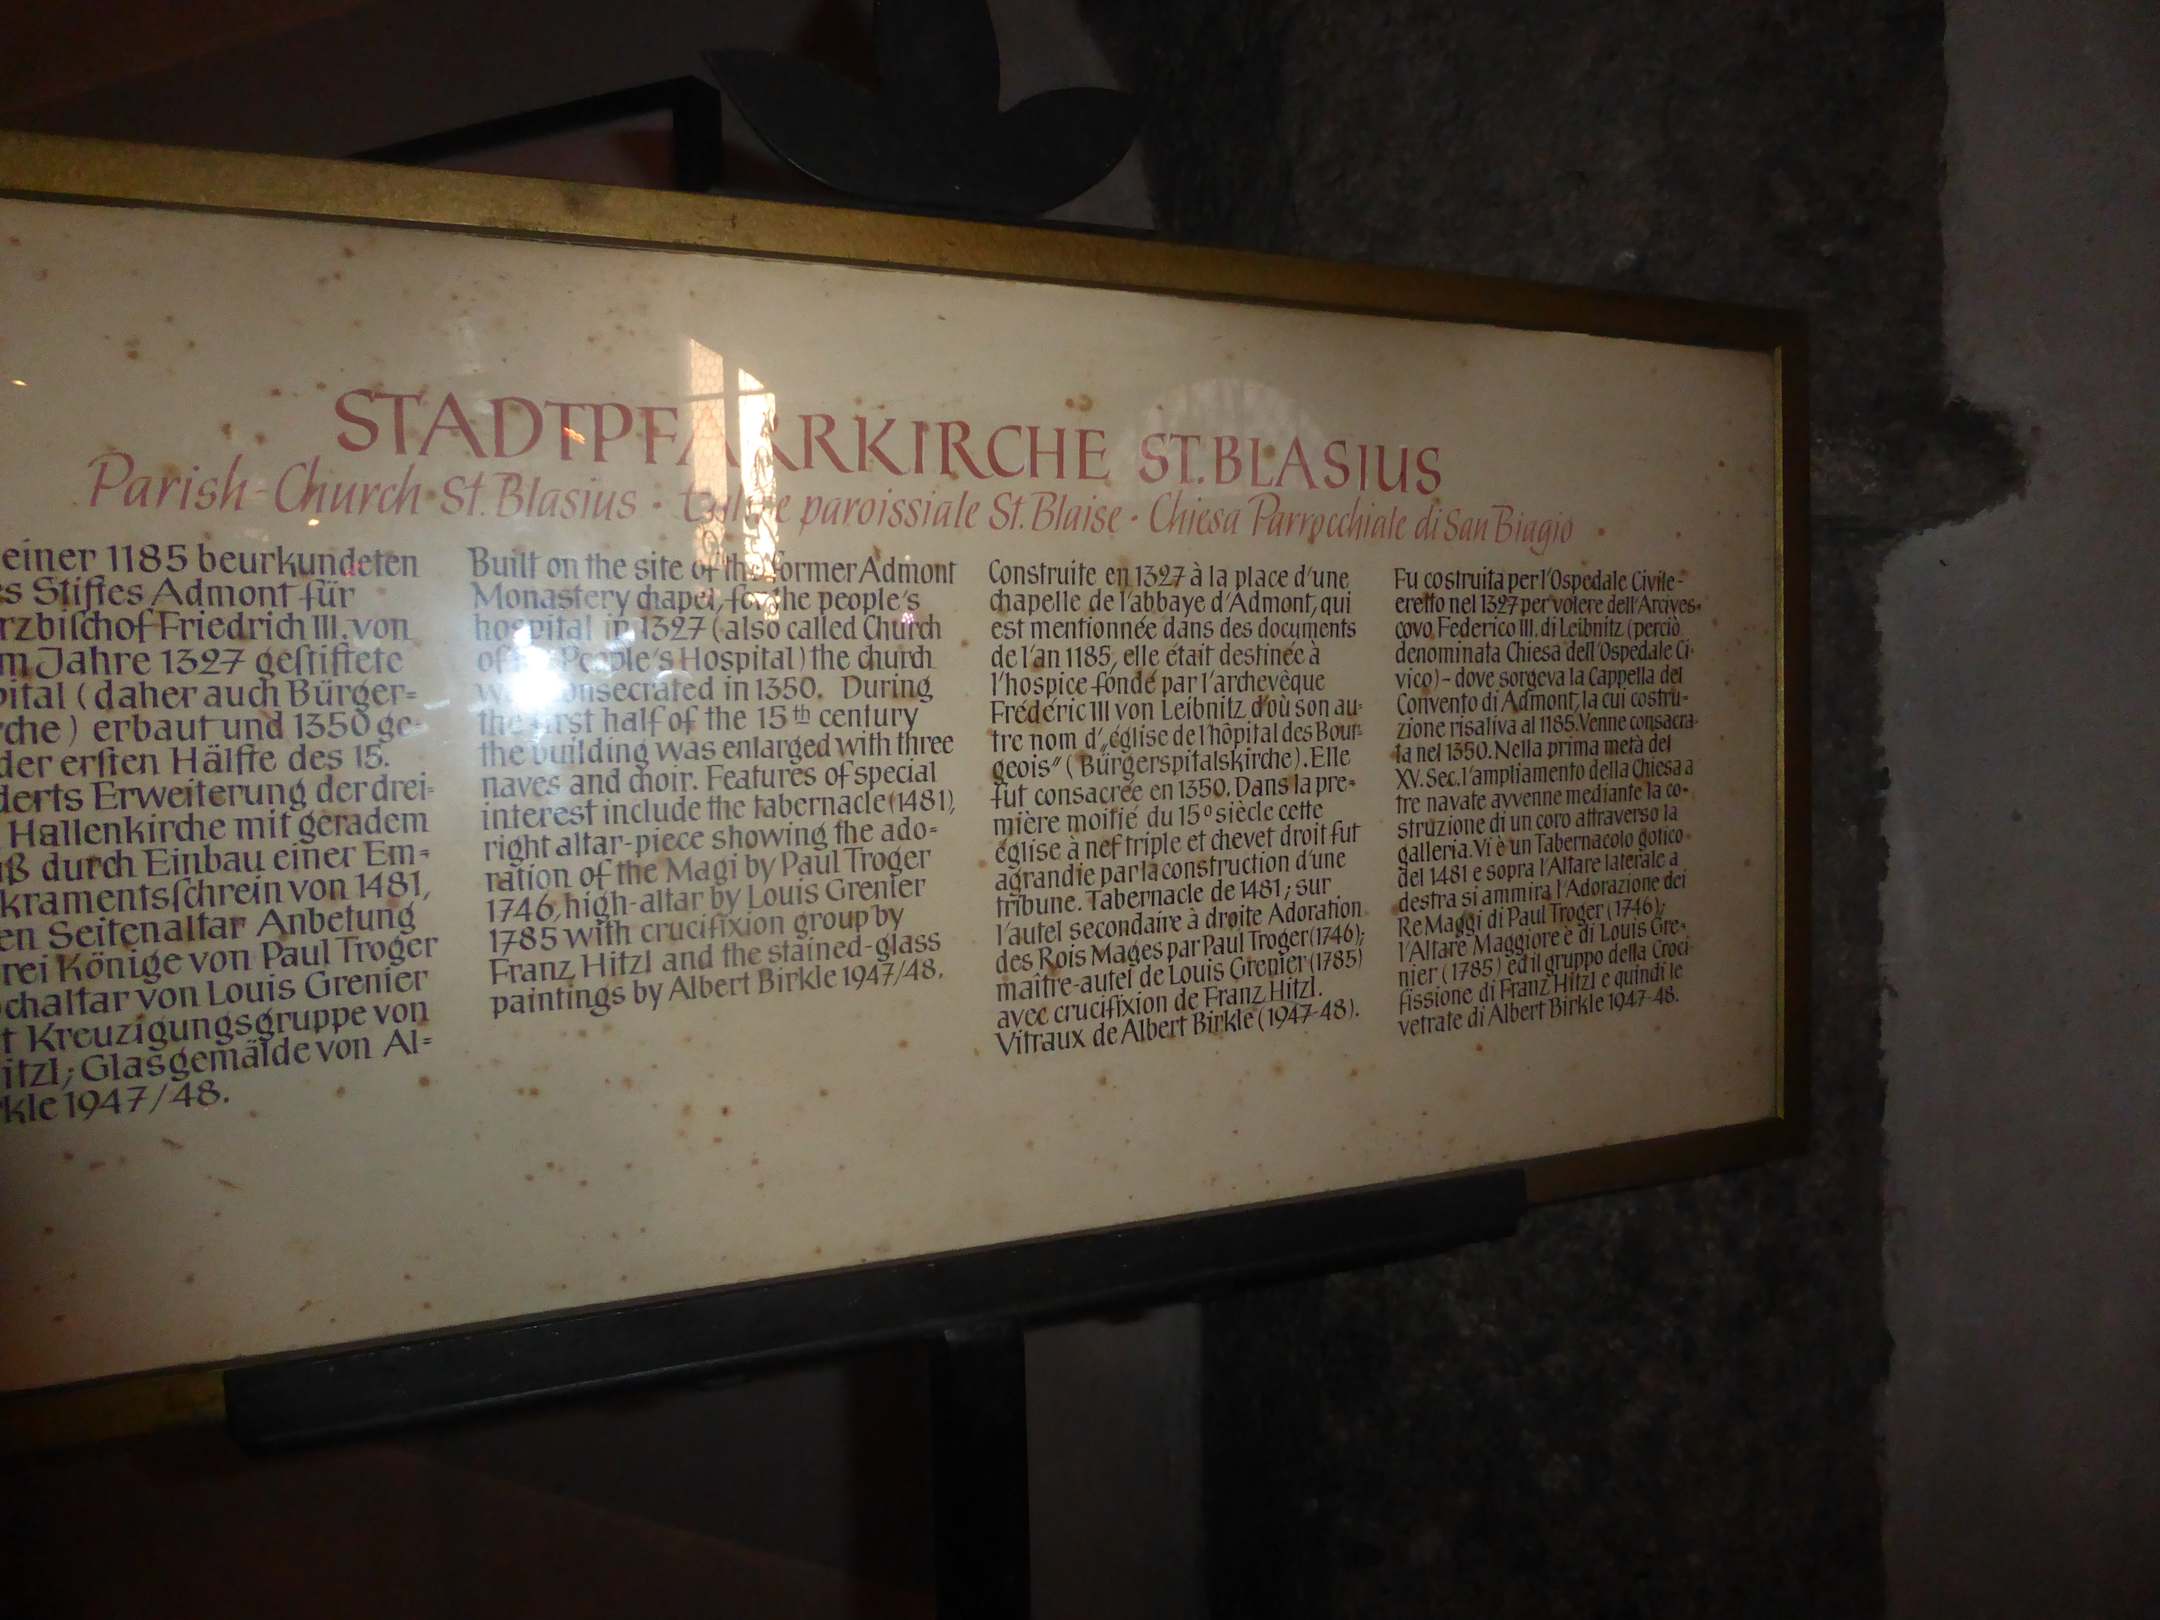 STADTPFARRKIRCHE ST. BLASIUS
Parish-Church St. Blasius · paroissiale St. Blaise · Chiesa Parrocchiale di San Biagio
einer 1185 beurkundeten
es Stiftes Admont für
rzbischof Friedrich III. von
m Jahre 1327 gestiftete
pital (daher auch Bürger=
rche) erbaut und 1350 ge-
der ersten Hälfte des 15.
derts Erweiterung der drei=
Hallenkirche mit geradem
uß durch Einbau einer Em=
kramentsschrein von 1481,
en Seitenaltar Anbetung
rei Könige von Paul Troger
ochaltar von Louis Grenier
t Kreuzigungsgruppe von
itzl; Glasgemälde von Al=
kle 1947/48.
Built on the site of the former Admont
Monastery chapel, for the people's
hospital in 1327 (also called Church
of People's Hospital) the church
consecrated in 1350. During
the first half of the 15th century
the building was enlarged with three
naves and choir. Features of special
interest include the tabernacle (1481),
right altar-piece showing the ado=
ration of the Magi by Paul Troger
1746, high-altar by Louis Grenier
1785 with crucifixion group by
Franz Hitzl and the stained-glass
paintings by Albert Birkle 1947/48.
Construite en 1327 à la place d'une
chapelle de l'abbaye d'Admont, qui
est mentionnée dans des documents
de l'an 1185, elle était destinée à
l'hospice fondé par l'archevèque
Frédéric III von Leibnitz d'où son au=
tre nom d'„église de l'hôpital des Bour=
geois" (Bürgerspitalskirche). Elle
fut consacrée en 1350. Dans la pre=
mière moitié du 15° siècle cette
église à nef triple et chevet droit fut
agrandie par la construction d'une
tribune. Tabernacle de 1481; sur
l'autel secondaire à droite Adoration
des Rois Mages par Paul Troger (1746);
maître-autel de Louis Grenier (1785)
avec crucifixion de Franz Hitzl.
Vitraux de Albert Birkle (1947-48).
Fu costruita per l'Ospedale Civile-
eretto nel 1327 per volere dell'Arcives=
covo Federico III. di Leibnitz (perciò
denominata Chiesa dell'Ospedale Ci=
vico) - dove sorgeva la Cappella del
Convento di Admont, la cui costru=
zione risaliva al 1185. Venne consacra=
ta nel 1350. Nella prima metà del
XV. Sec. l'ampliamento della Chiesa a
tre navate avvenne mediante la co=
struzione di un coro attraverso la
galleria. Vi è un Tabernacolo gotico
del 1481 e sopra l'Altare laterale a
destra si ammira l'Adorazione dei
Re Maggi di Paul Troger (1746);
l'Altare Maggiore è di Louis Gre=
nier (1785) ed il gruppo della Croci=
fissione di Franz Hitzl e quindi le
vetrate di Albert Birkle 1947-48.